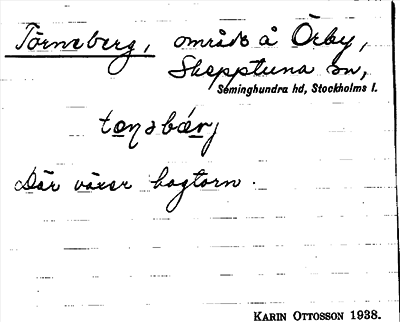 Törneberg, område å Örby,
Skepptuna sn,
Seminghundra hd, Stockholms l.
Där växer hagtorn.
KARIN OTTOSSON 1938.